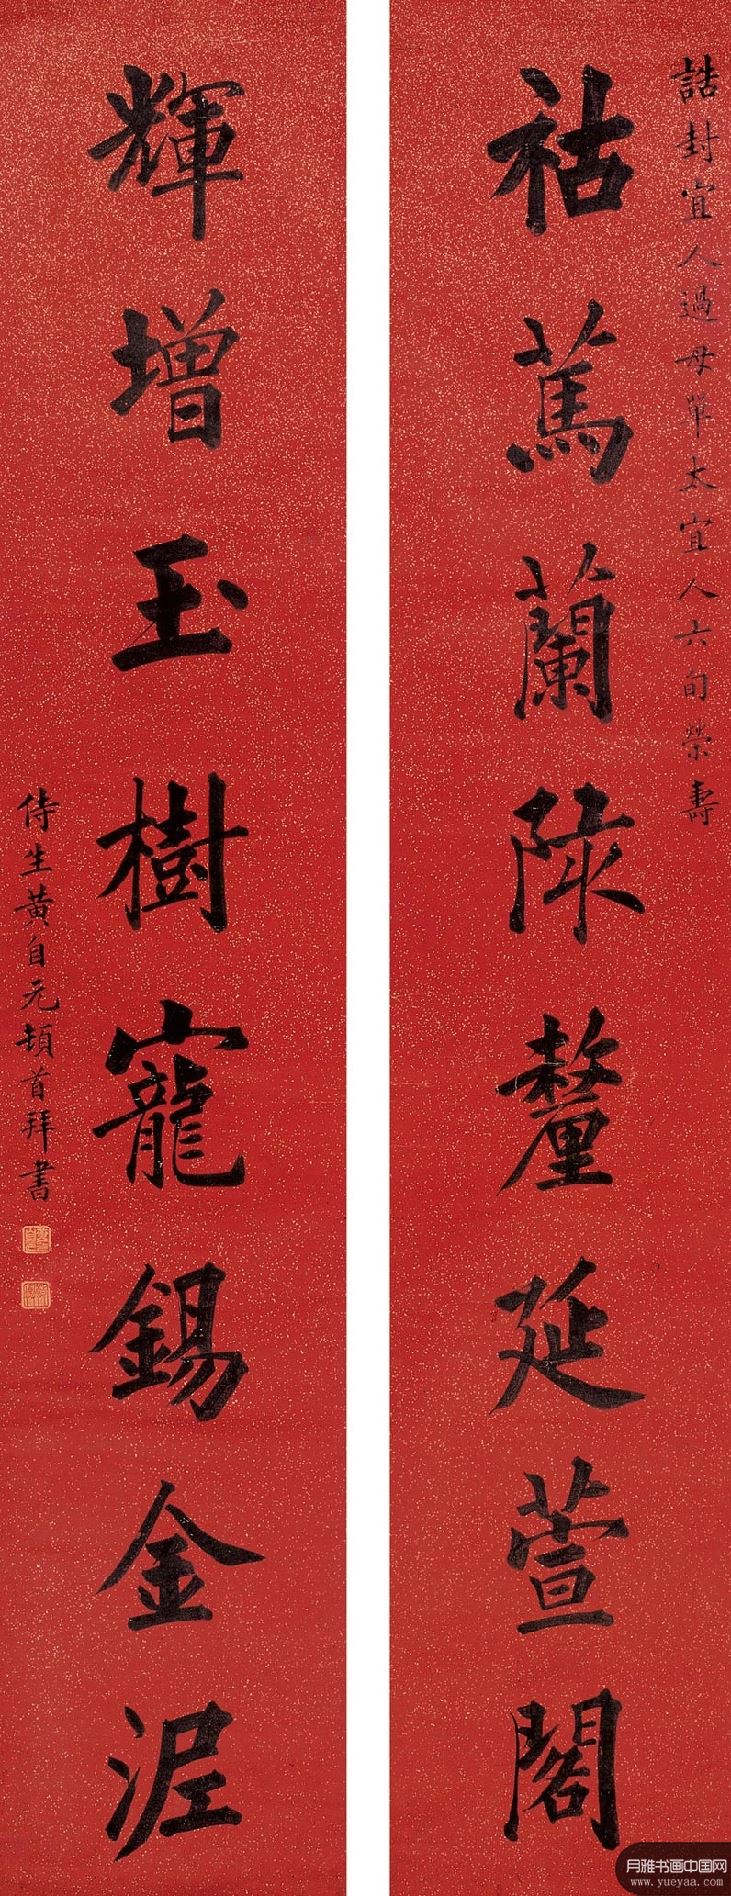 誥封宜人過母單太宜人六旬榮壽
祜篤蘭陔釐延萱閣
輝增玉樹寵錫金泥
侍生黃自元頓首拜書
月雅书画中国网
www.yueyaa.com